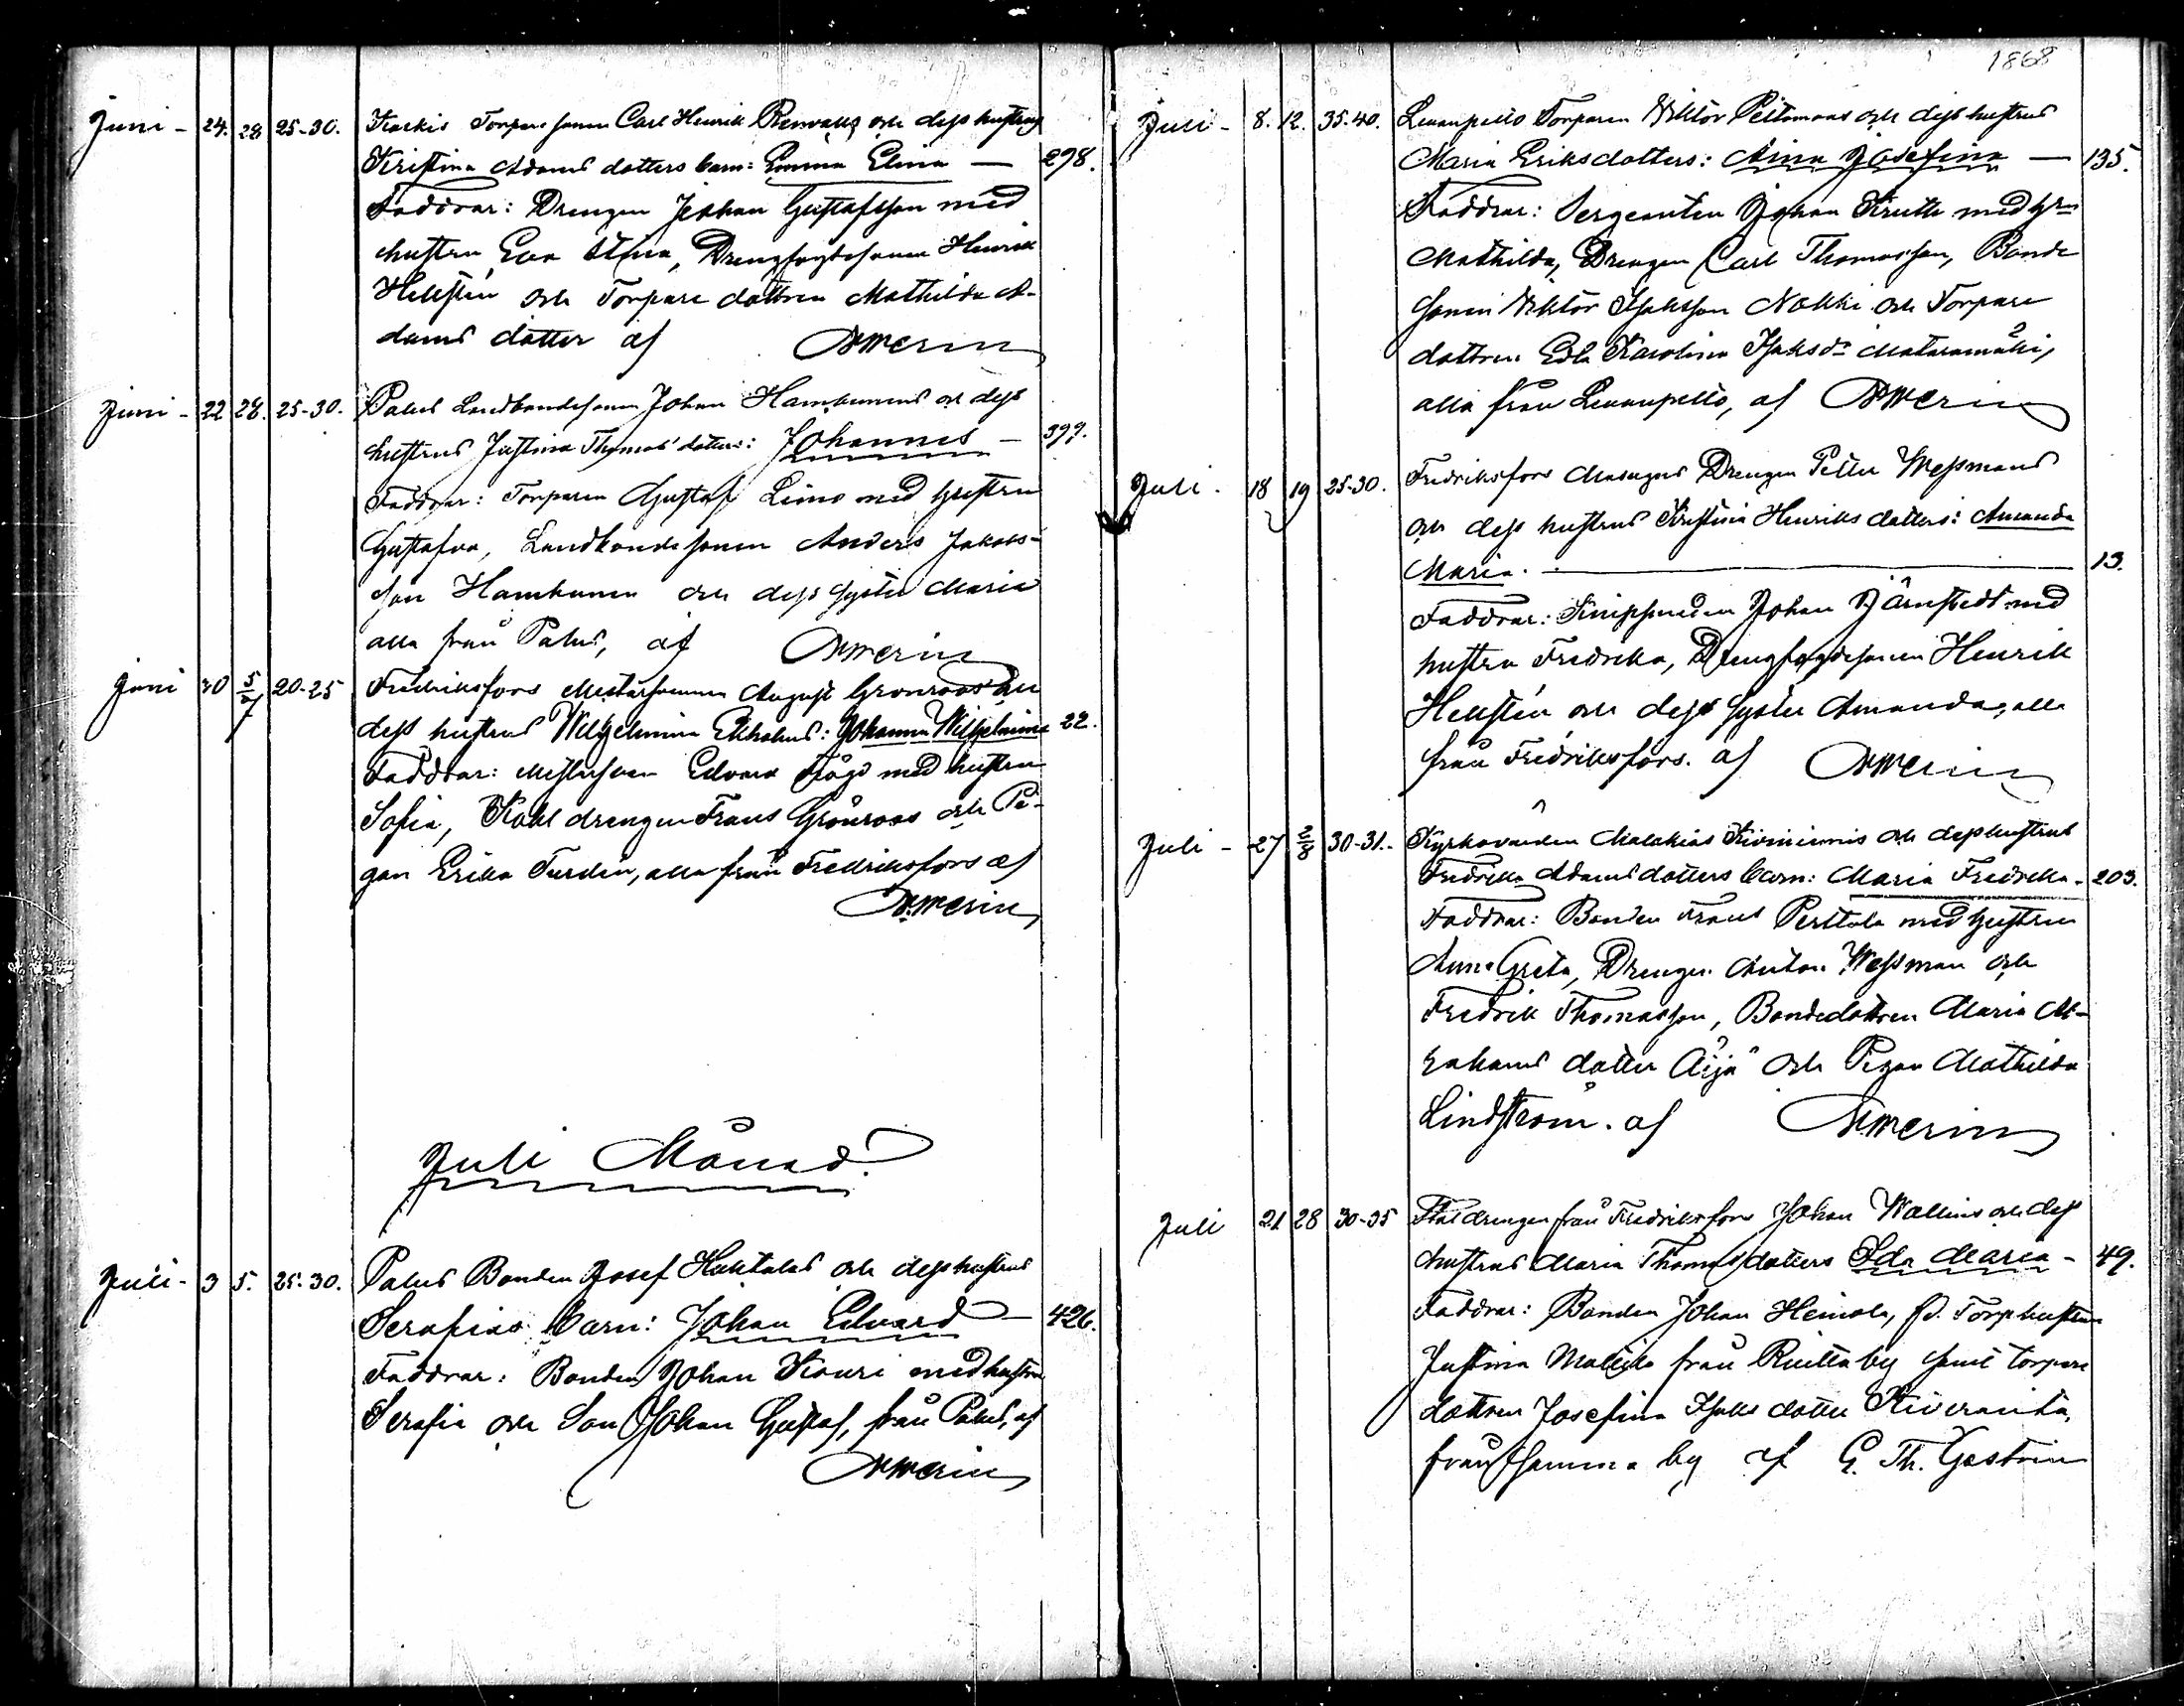 Juni - 24. 28 25-30. Torpare sonen Carl Henrik Renvalls och dess hustrus
Kristina Adams dotters barn: Emma Elina — 298.
Faddrar: Drengen Johan Gustafsson med
hustru Eva Stina, Drengfogdesonen Henrik
Hellstén och Torpare dottren Mathilda A-
dams dotter af
Juni - 22 28. 25-30. Palus Landbondesonen Johan Hamkunens och dess
hustrus Justina Thomas dotters: Johannes — 399.
Faddrar: Torparen Gustaf Leino med hustru
Gustafva, Landbondesonen Anders Jakobs-
son Hamkunen och dess syster Maria
alla från Palus, af
Juni 30 5/7 20-25 Fredriksfors August Grönroos och
dess hustrus Wilhelmina Ekholms: Johanna Wilhelmina 22.
Faddrar: Edvard med hustru
Sofia, Frans Grönroos och Pi-
gan Erika Turdin, alla från Fredriksfors af
Juli Månad.
Juli - 3 5. 25-30. Palus Bonden Josef Huhtalas och dess hustrus
Serafias barn: Johan Edvard — 426.
Faddrar: Bonden Johan Kouri med hustru
Serafia och Son Johan Gustaf, från Palus, af
1868
Juli - 8. 12. 35-40. Levanpelto Torparen Viktor Peltomaas och dess hustrus
Maria Eriksdotters: Aina Josefina — 135.
Faddrar: Sergeanten Johan med
Mathilda, Drengen Carl Thomasson, Bonde
sonen Viktor Isaksson Nokki och Torpare
dottren Edla Karolina Isaksdr
alla från Levanpelto, af
Juli - 18 19 25-30. Fredriksfors Masugns Drengen Petter Wessmans
och dess hustrus Kristina Henriks dotters: Amanda
Maria. — 13.
Faddrar: Knippsmeden Johan Järnstedt med
hustru Fredrika, Drengfogdesonen Henrik
Hellstén och dess syster Amanda, alla
från Fredriksfors. af
Juli - 27 2/8 30-31. Kyrkovärden Malakias Kiviniemis och dess hustrus
Fredrika Adamsdotters barn: Maria Fredrika - 203.
Faddrar: Bonden Frans Perttola med hustru
Anna Greta, Drengen Anton Wessman och
Fredrik Thomasson, Bondedottren Maria
dotter Äijä och Pigan Mathilda
Lindström. af
Juli 21 28 30-35 Stal drengen från Fredriksfors Johan Wallins och dess
hustrus Maria Thomasdotters Ida Maria - 49.
Faddrar: Bonden Johan Heinola,
Justina från by samt torpare
dottren Josefina Isaks dotter Kiviranta,
från samma by af G. Th. Gestrin